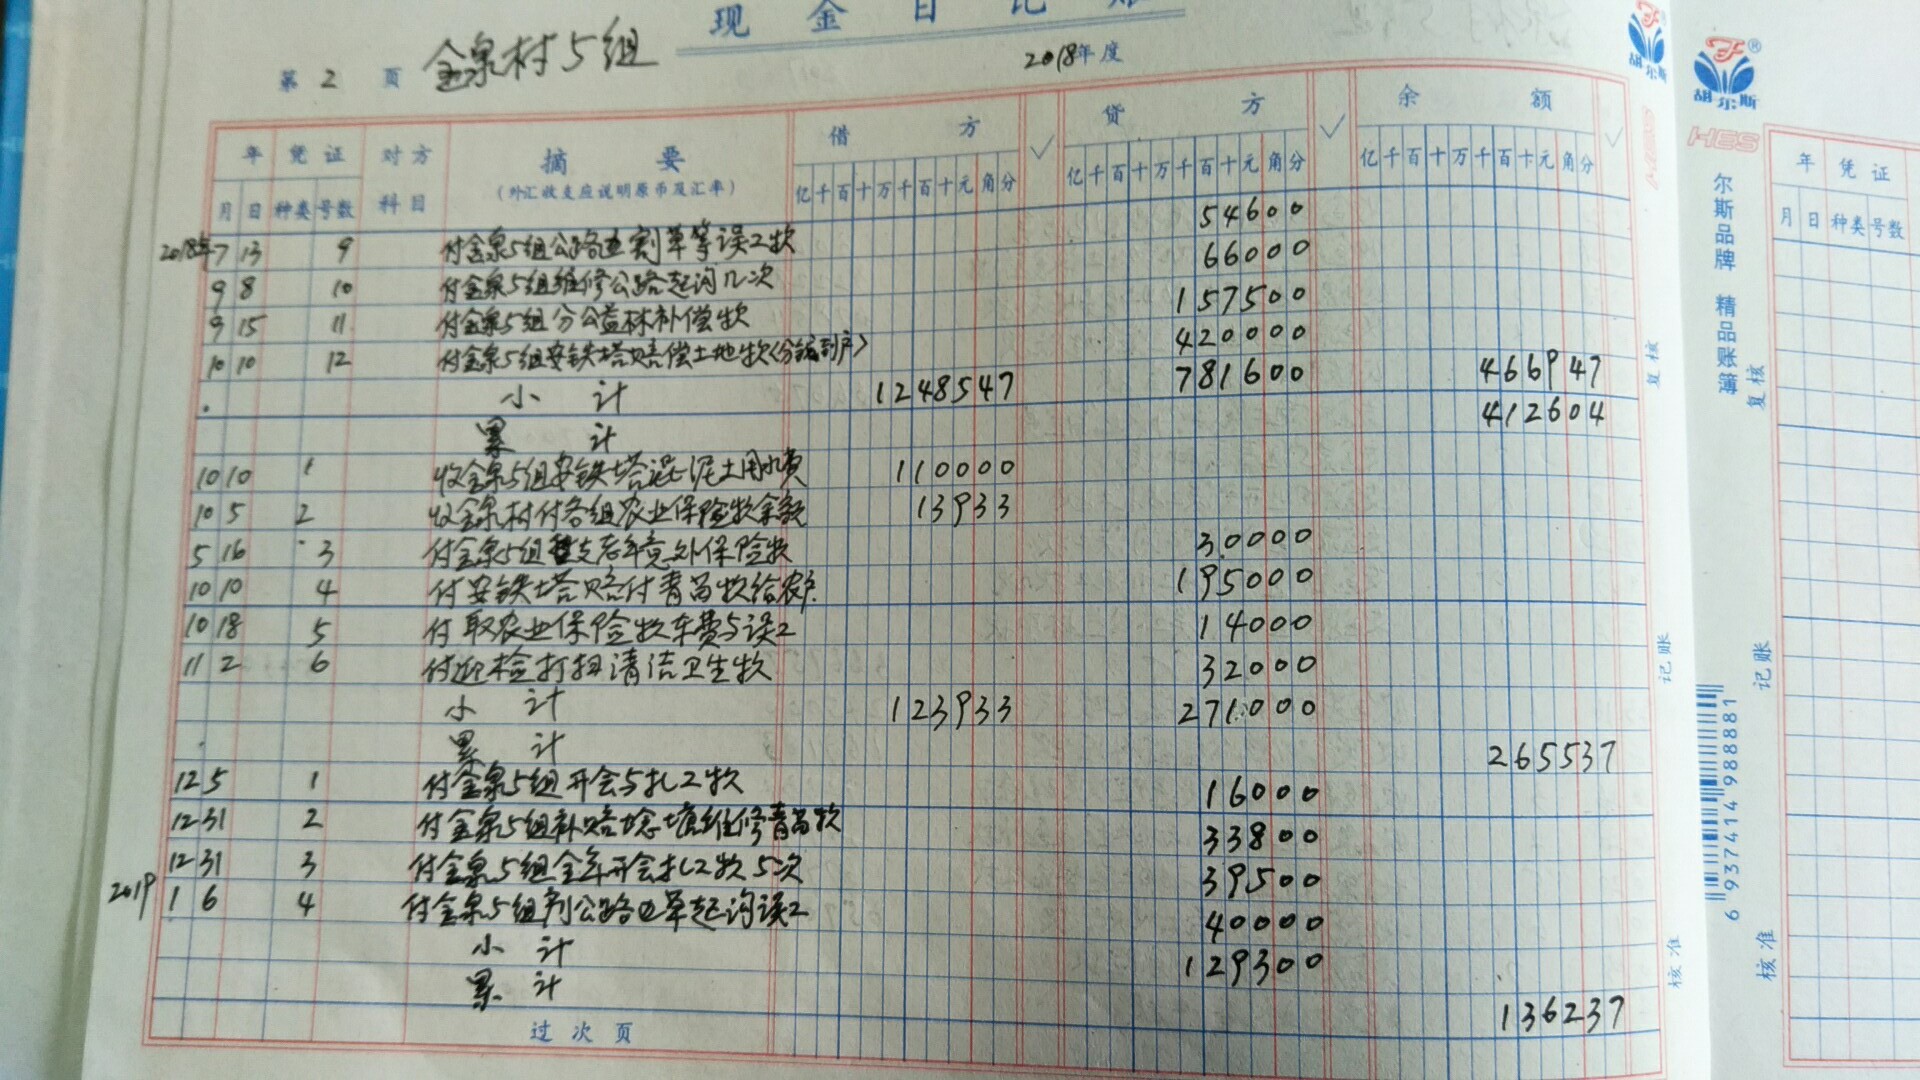 现金日记账
第 2 页 金泉村5组 2018年度
年 凭证 对方 摘要 借方 贷方 余额
月 日 种类 号数 科目 (外汇收支应说明原币及汇率) 亿千百十万千百十元角分 亿千百十万千百十元角分 亿千百十万千百十元角分
2018年7 13 9 付金泉5组公路边割草等误工款 54600
9 8 10 付金泉5组维修公路起沟几次 66000
9 15 11 付金泉5组分公益林补偿款 157500
10 10 12 付金泉5组安铁塔赔偿土地款(分到户) 420000
小计 1248547 781600 466947
累计 412604
10 10 1 收金泉5组安铁塔混泥土用水费 110000
10 5 2 收金泉村付各组农业保险款余额 13933
5 16 3 付金泉5组支老年意外保险款 30000
10 10 4 付安铁塔赔付青苗款给农户 195000
10 18 5 付取农业保险款车费与误工 14000
11 2 6 付迎检打扫清洁卫生款 32000
小计 123933 271000
累计 265537
12 5 1 付金泉5组开会与扎工款 16000
12 31 2 付金泉5组补赔埝塘维修青苗款 33800
12 31 3 付金泉5组全年开会扎工款5次 39500
2019 1 6 4 付金泉5组割公路边草起沟误工 40000
小计 129300
累计 136237
过次页
复核
记账
核准
胡尔斯
HES
胡尔斯
HES
尔斯品牌 精品账簿
6 937414 988881
复核
记账
核准
年 凭证
月 日 种类 号数